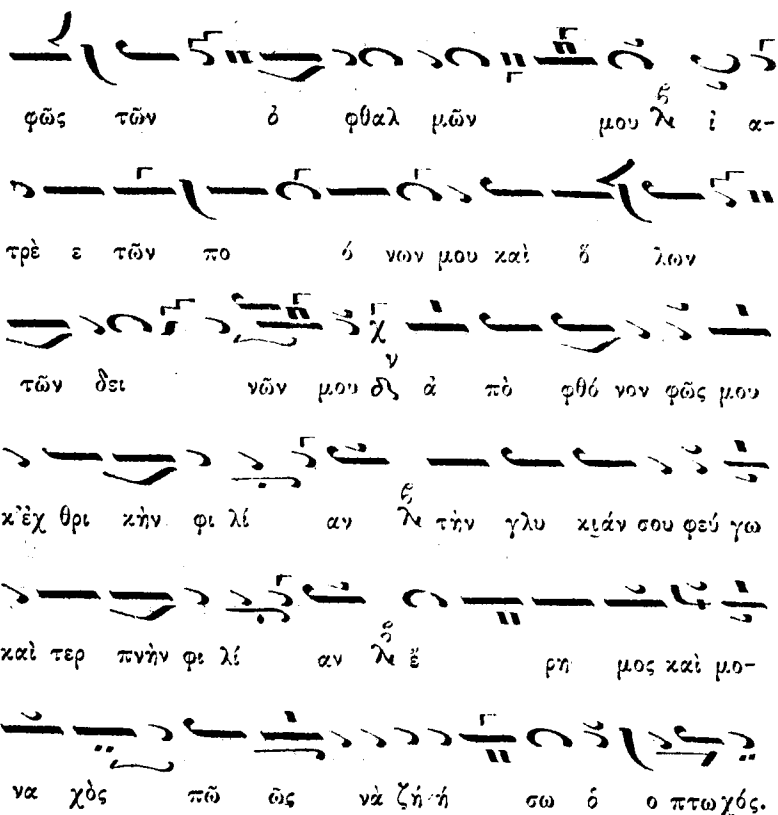 φῶς τῶν ὀ φθαλ μῶν μου ἰ α-
τρὲ ε τῶν πο ό νων μου καὶ ὅ λων
τῶν δει νῶν μου ἀ πὸ φθό νον φῶς μου
κ’ἐχ θρι κὴν φι λί αν τὴν γλυ κιάν σου φεύ γω
καὶ τερ πνὴν φι λί αν ἔ ρη μος καὶ μο-
να χὸς πῶ ῶς νὰ ζή ή σω ὁ ο πτω χός.